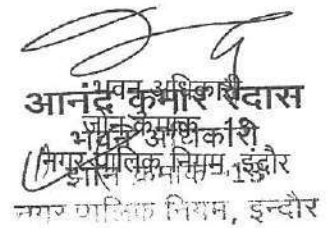 भवन अधिकारी
आनंद कुमार रैदास
जोन क्रमांक - 19
भवन अधिकारी
नगर पालिक निगम, इंदौर
झोन क्रमांक - 19
नगर पालिक निगम, इन्दौर